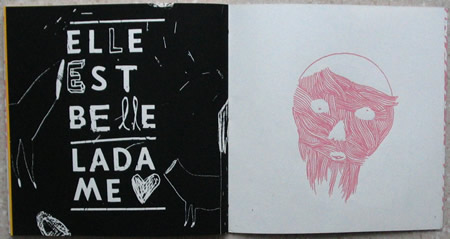 ELLE
EST
BElle
LADA
ME